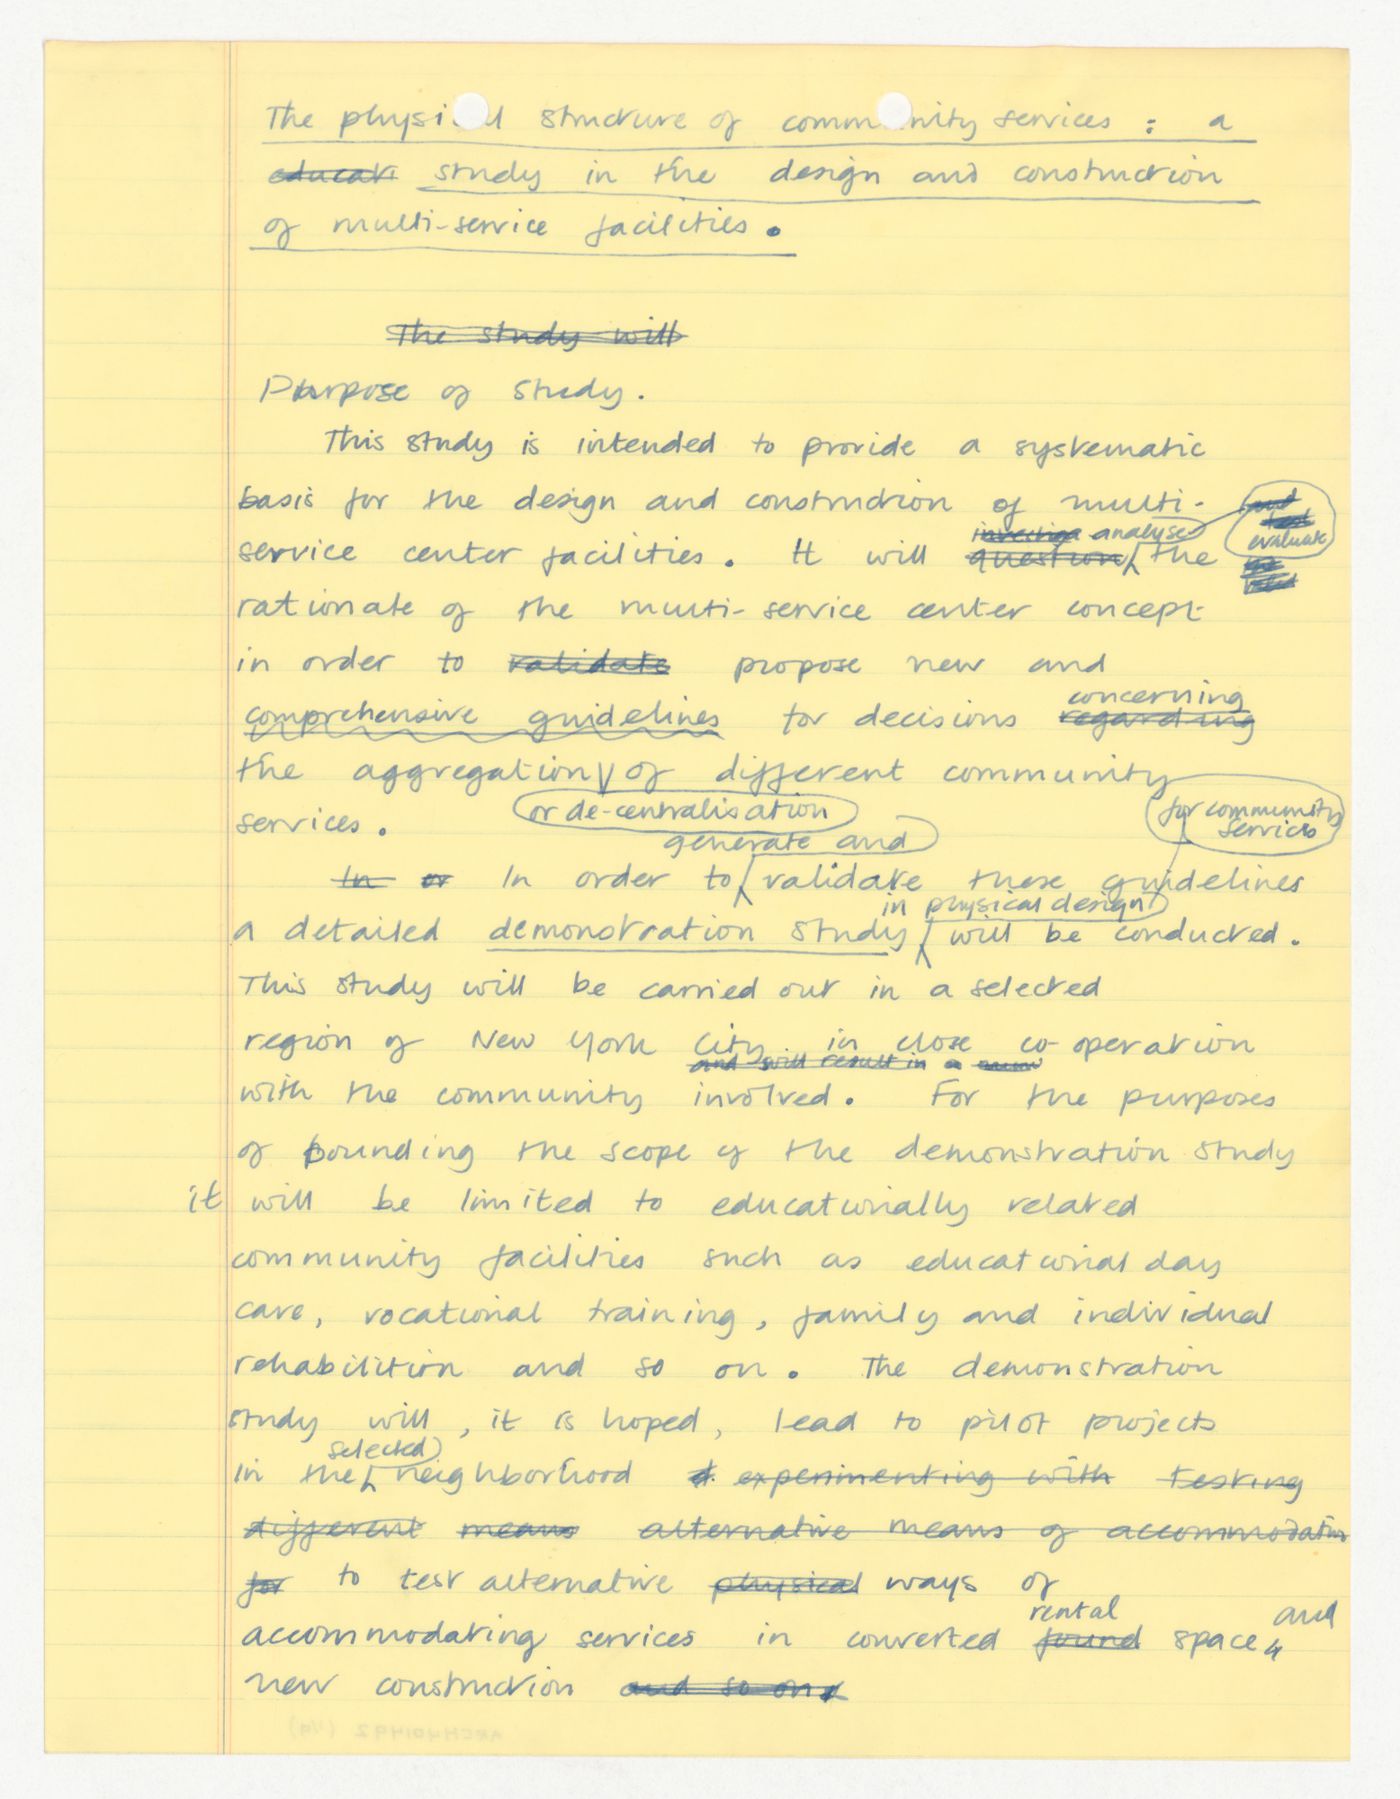 The physical structure of community services : a
educati study in the design and construction
of multi-service facilities.
The study will
Purpose of study.
This study is intended to provide a systematic
basis for the design and construction of multi-
investiga analyse evaluate
service center facilities. It will question the
rationale of the multi-service center concept
in order to validate propose new and
concerning
comprehensive guidelines for decisions regarding
the aggregation of different community
or de-centralisation for community services
services.
generate and
In or In order to validate these guidelines
in physical design
a detailed demonstration study will be conducted.
This study will be carried out in a selected
region of New York City in close co-operation
and will result in a
with the community involved. For the purposes
of bounding the scope of the demonstration study
it will be limited to educationally related
community facilities such as educational day
care, vocational training, family and individual
rehabilition and so on. The demonstration
study will, it is hoped, lead to pilot projects
selected
in the neighborhood experimenting with testing
different means alternative means of accommodation
for to test alternative physical ways of
rental and
accommodating services in converted found space,
new construction and so on